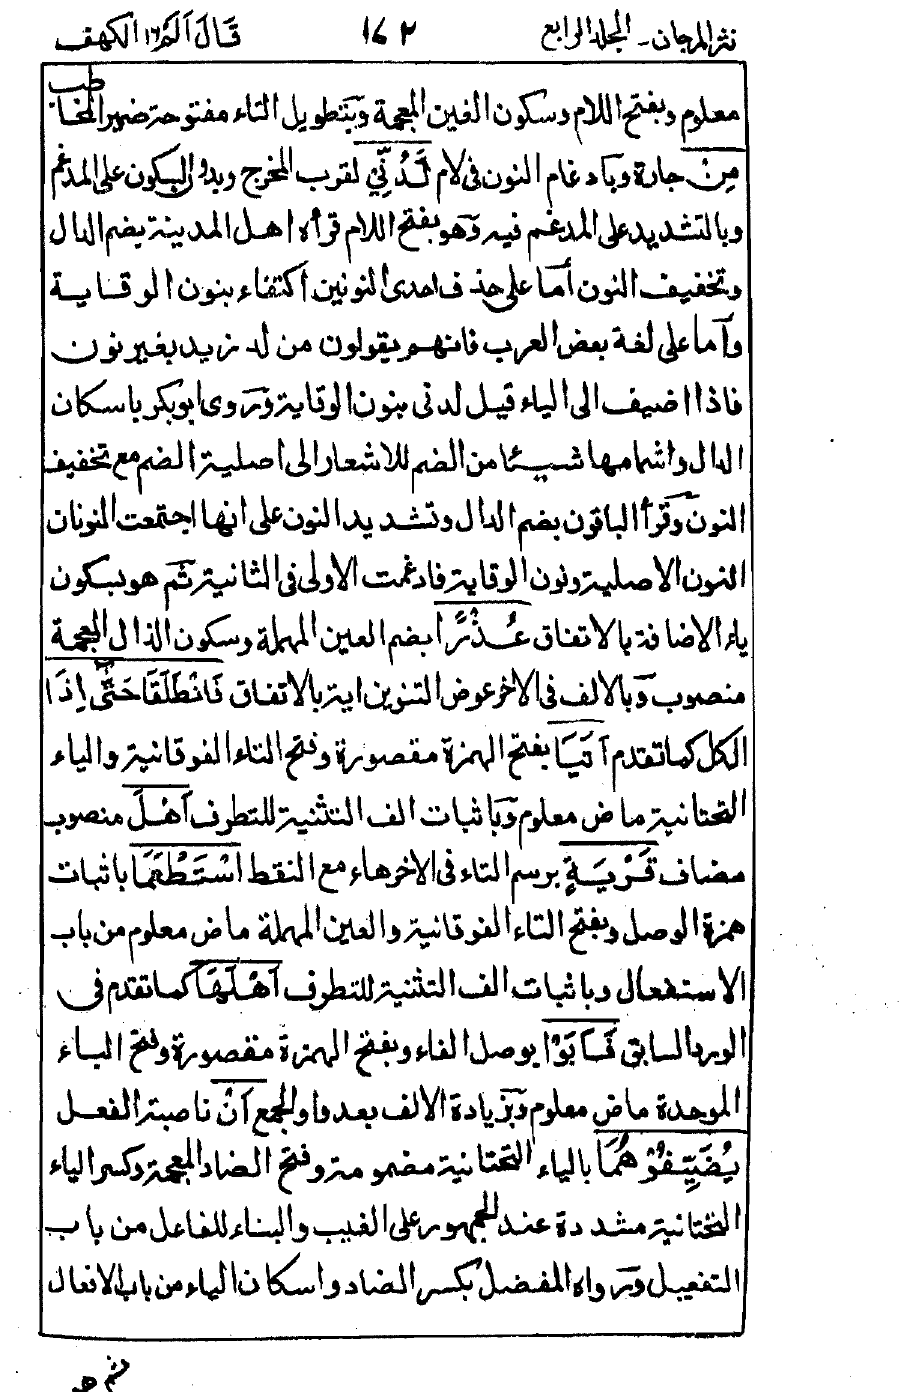 نثر المرجان - المجلد الرابع ١٦٢ قَالَ اَلَمْ ١٦ الكهف
معلوم وبفتح اللام وسكون الغين المعجمة وبتطويل التاء مفتوحة ضمير المخاطب
مِنْ جارة وبادغام النون فى لام لَّدُنِّي لقرب المخرج وبدون السكون على المدغم
وبالتشديد على المدغم فيه وهو بفتح اللام قرأه اهل المدينة بضم الدال
وتخفيف النون أما على حذف احدى النونين اكتفاء بنون الوقاية
وأما على لغة بعض العرب فانهم يقولون من لد زيد بغير نون
فاذا اضيف الى الياء قيل لدنى بنون الوقاية وروى ابوبكر باسكان
الدال واشمامها شيئا من الضم للاشعار الى اصلية الضم مع تخفيف
النون وقرأ الباقون بضم الدال وتشديد النون على انها اجتمعت النونان
النون الاصلية ونون الوقاية فادغمت الاولى فى الثانية ثم هو بسكون
ياء الاضافة بالاتفاق عُذْرًا بضم العين المهملة وسكون الذال المعجمة
منصوب وبالالف فى الاخر عوض التنوين اية بالاتفاق فَانْطَلَقَا حَتّٰى اِذَا
الكل كما تقدم اَتَيَا بفتح الهمزة مقصورة وفتح التاء الفوقانية والياء
التحتانية ماض معلوم وباثبات الف التثنية للتطرف اَهْلَ منصوب
مضاف قَرْيَةٍ برسم التاء فى الاخر هاء مع النقط اسْتَطْعَمَا باثبات
همزة الوصل وبفتح التاء الفوقانية والعين المهملة ماض معلوم من باب
الاستفعال وباثبات الف التثنية للتطرف اَهْلَهَا كما تقدم فى
الورد السابق فَاَبَوْا بوصل الفاء وبفتح الهمزة مقصورة وفتح الباء
الموحدة ماض معلوم وبزيادة الالف بعد واو الجمع اَنْ ناصبة الفعل
يُضَيِّفُوْهُمَا بالياء التحتانية مضمومة وفتح الضاد المعجمة وكسر الياء
التحتانية مشددة عند الجمهور على الغيب والبناء للفاعل من باب
التفعيل ورواه المفضل بكسر الضاد واسكان الياء من باب الافعال
ثم هو